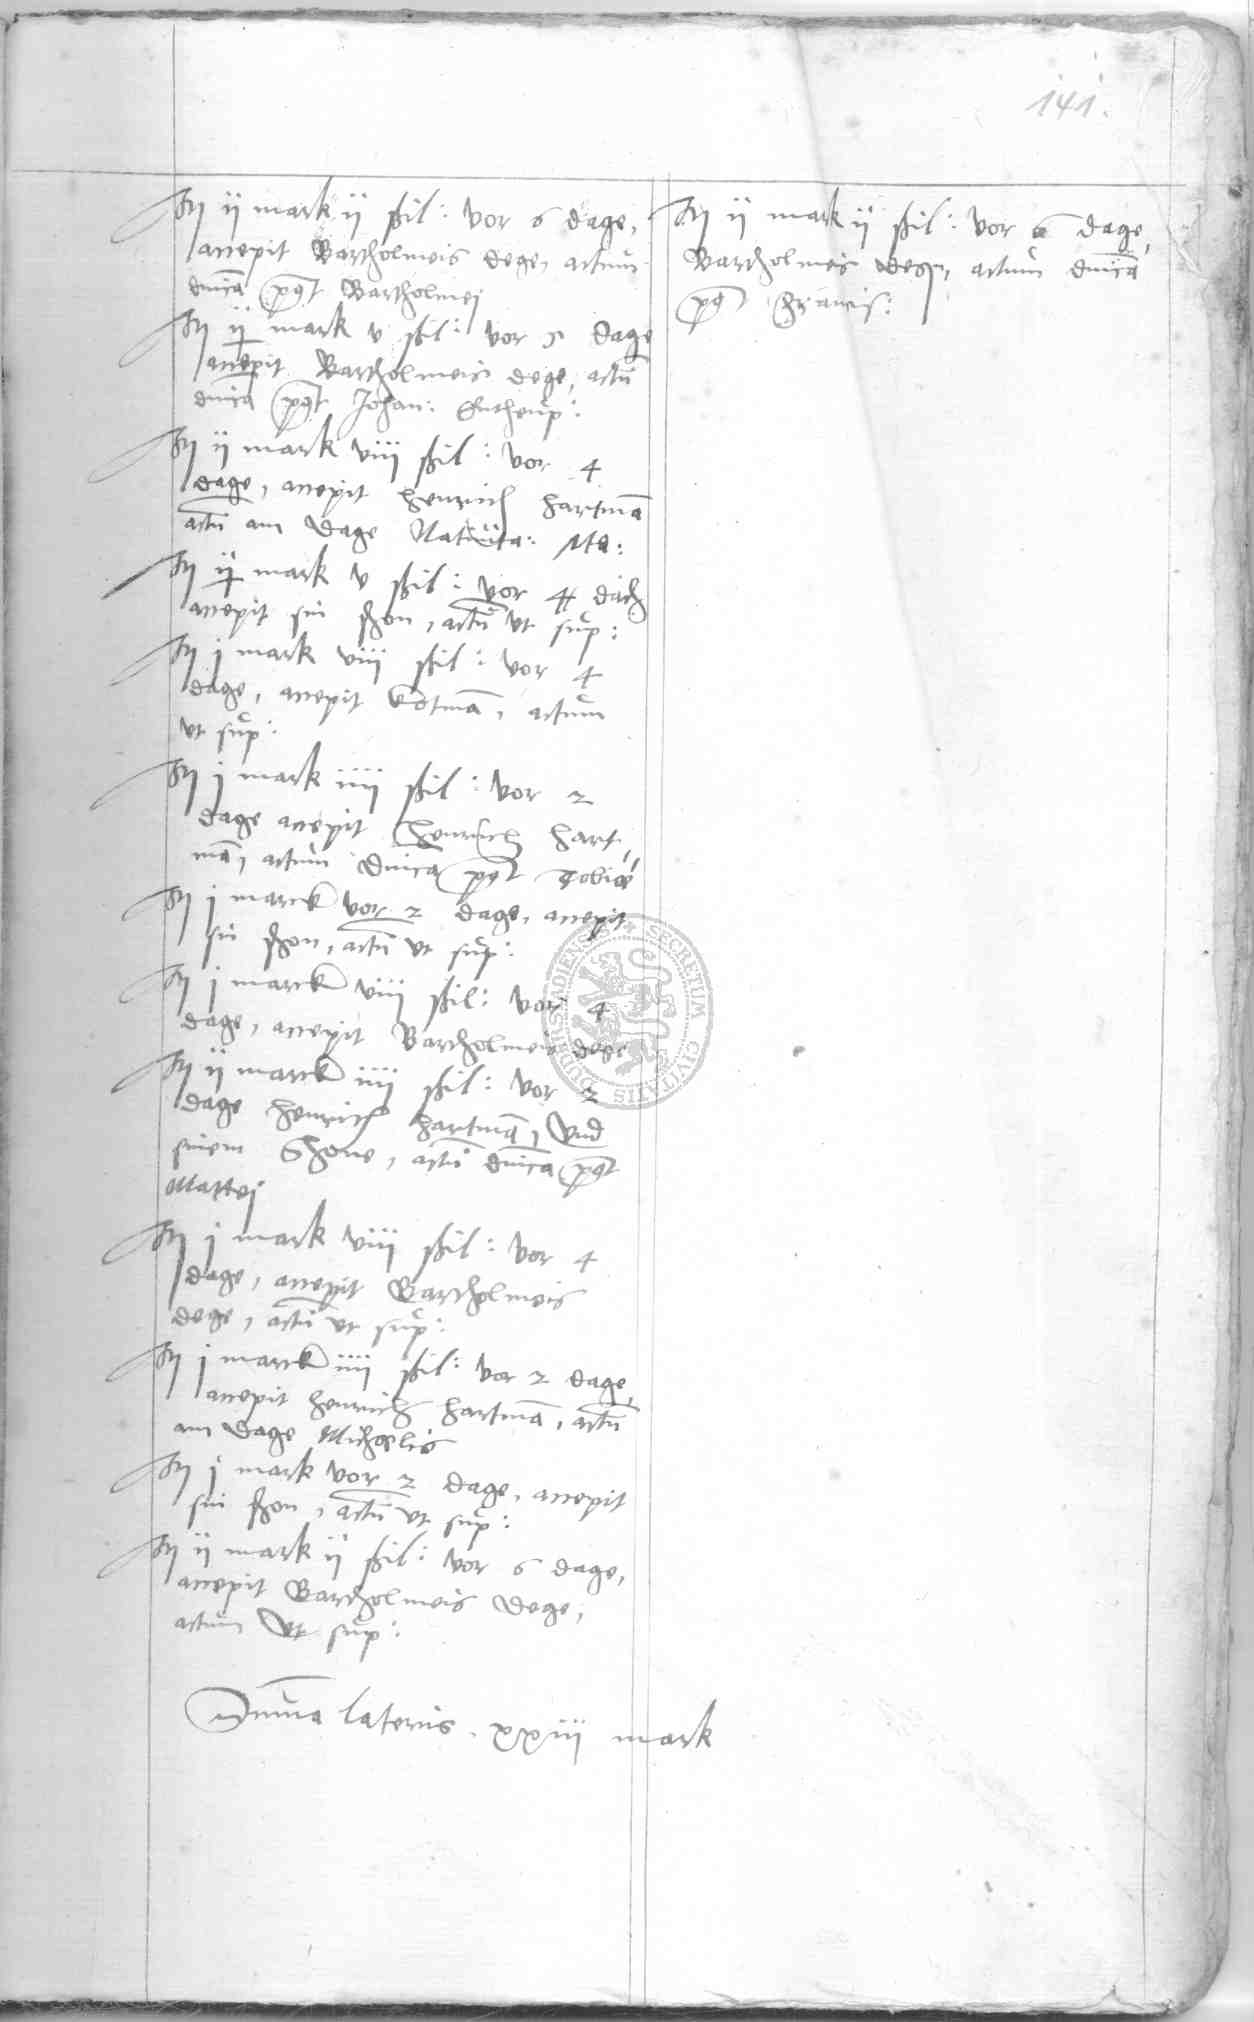 141.
Itm ij mark ij ßil: vor 6 dage,
accepit Bartholmeis dege, actum
dnica post Bartholmej
Itm ij mark v ßil: vor 5 dage
accepit Bartholmeis dege, actu
dnica post Johan: Entheup:
Itm ij mark viij ßil: vor 4
dage, accepit Henrich Hartma
actu am dage Natiuita: Ma:
Itm ij mark v ßil: vor 4 dach
accepit sin ßon, actu vt sup:
Itm j mark viij ßil: vor 4
dage, accepit actum
vt sup:
Itm j mark iiij ßil: vor 2
dage accepit Henrich Hart,,
ma, actum dnica post Tobiae
Itm j marck vor 2 dage, accepit
sin ßon, actu vt sup:
Itm j marck viij ßil: vor 4
dage, accepit Bartholmeis dege
Itm ij marck iiij ßil: vor 2
dage Henrich Hartma, vnd
sinem Shone, actu dnica post
Mattej
Itm j mark viij ßil: vor 4
dage, accepit Bartholmeis
dege, actu vt sup:
Itm j marck iiij ßil: vor 2 dage,
accepit Henrich Hartma, actu
am dage Michaelis
Itm j mark vor 2 dage, accepit
sin ßon, actu vt sup:
Itm ij mark ij ßil: vor 6 dage,
accepit Bartholmeis dege,
actum vt sup:
Suma lateris. xxiij mark
Itm ij mark ij ßil: vor 6 dage,
Bartholmeis dege, actum dnica
post Francis:
SECRETUM CIVITATIS DUDERSTADIENSIS